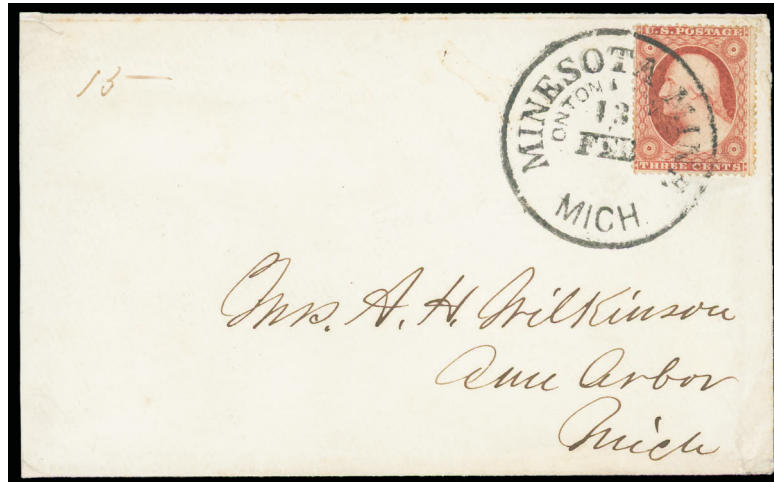 15
U.S. POSTAGE
THREE CENTS
MINESOTA MINE
ONTON
13
FEB
MICH.
Mrs. A. H. Wilkinson
Ann Arbor
Mich